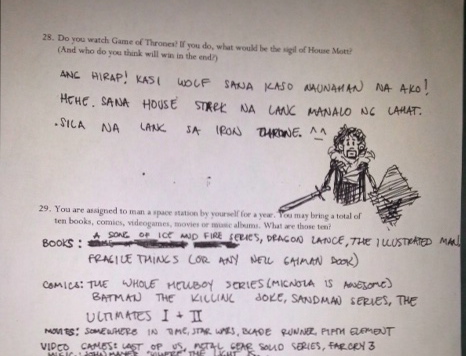 28. Do you watch Game of Thrones? If you do, what would be the sigil of House Mott?
(And who do you think will win in the end?)
ANG HIRAP! KASI WOLF SANA KASO NAUNAHAN NA AKO!
HEHE. SANA HOUSE STARK NA LANG MANALO NG LAHAT.
. SILA NA LANG SA IRON THRONE. ^^
29. You are assigned to man a space station by yourself for a year. You may bring a total of
ten books, comics, videogames, movies or music albums. What are those ten?
BOOKS: A SONG OF ICE AND FIRE SERIES, DRAGON LANCE, THE ILLUSTRATED MAN,
FRAGILE THINGS (OR ANY NEIL GAIMAN BOOK)
COMICS: THE WHOLE HELLBOY SERIES (MIGNOLA IS AWESOME)
BATMAN THE KILLING JOKE, SANDMAN SERIES, THE
ULTIMATES I + II
MOVIES: SOMEWHERE IN TIME, STAR WARS, BLADE RUNNER, FIFTH ELEMENT
VIDEO GAMES: LAST OF US, METAL GEAR SOLID SERIES, FAR CRY 3